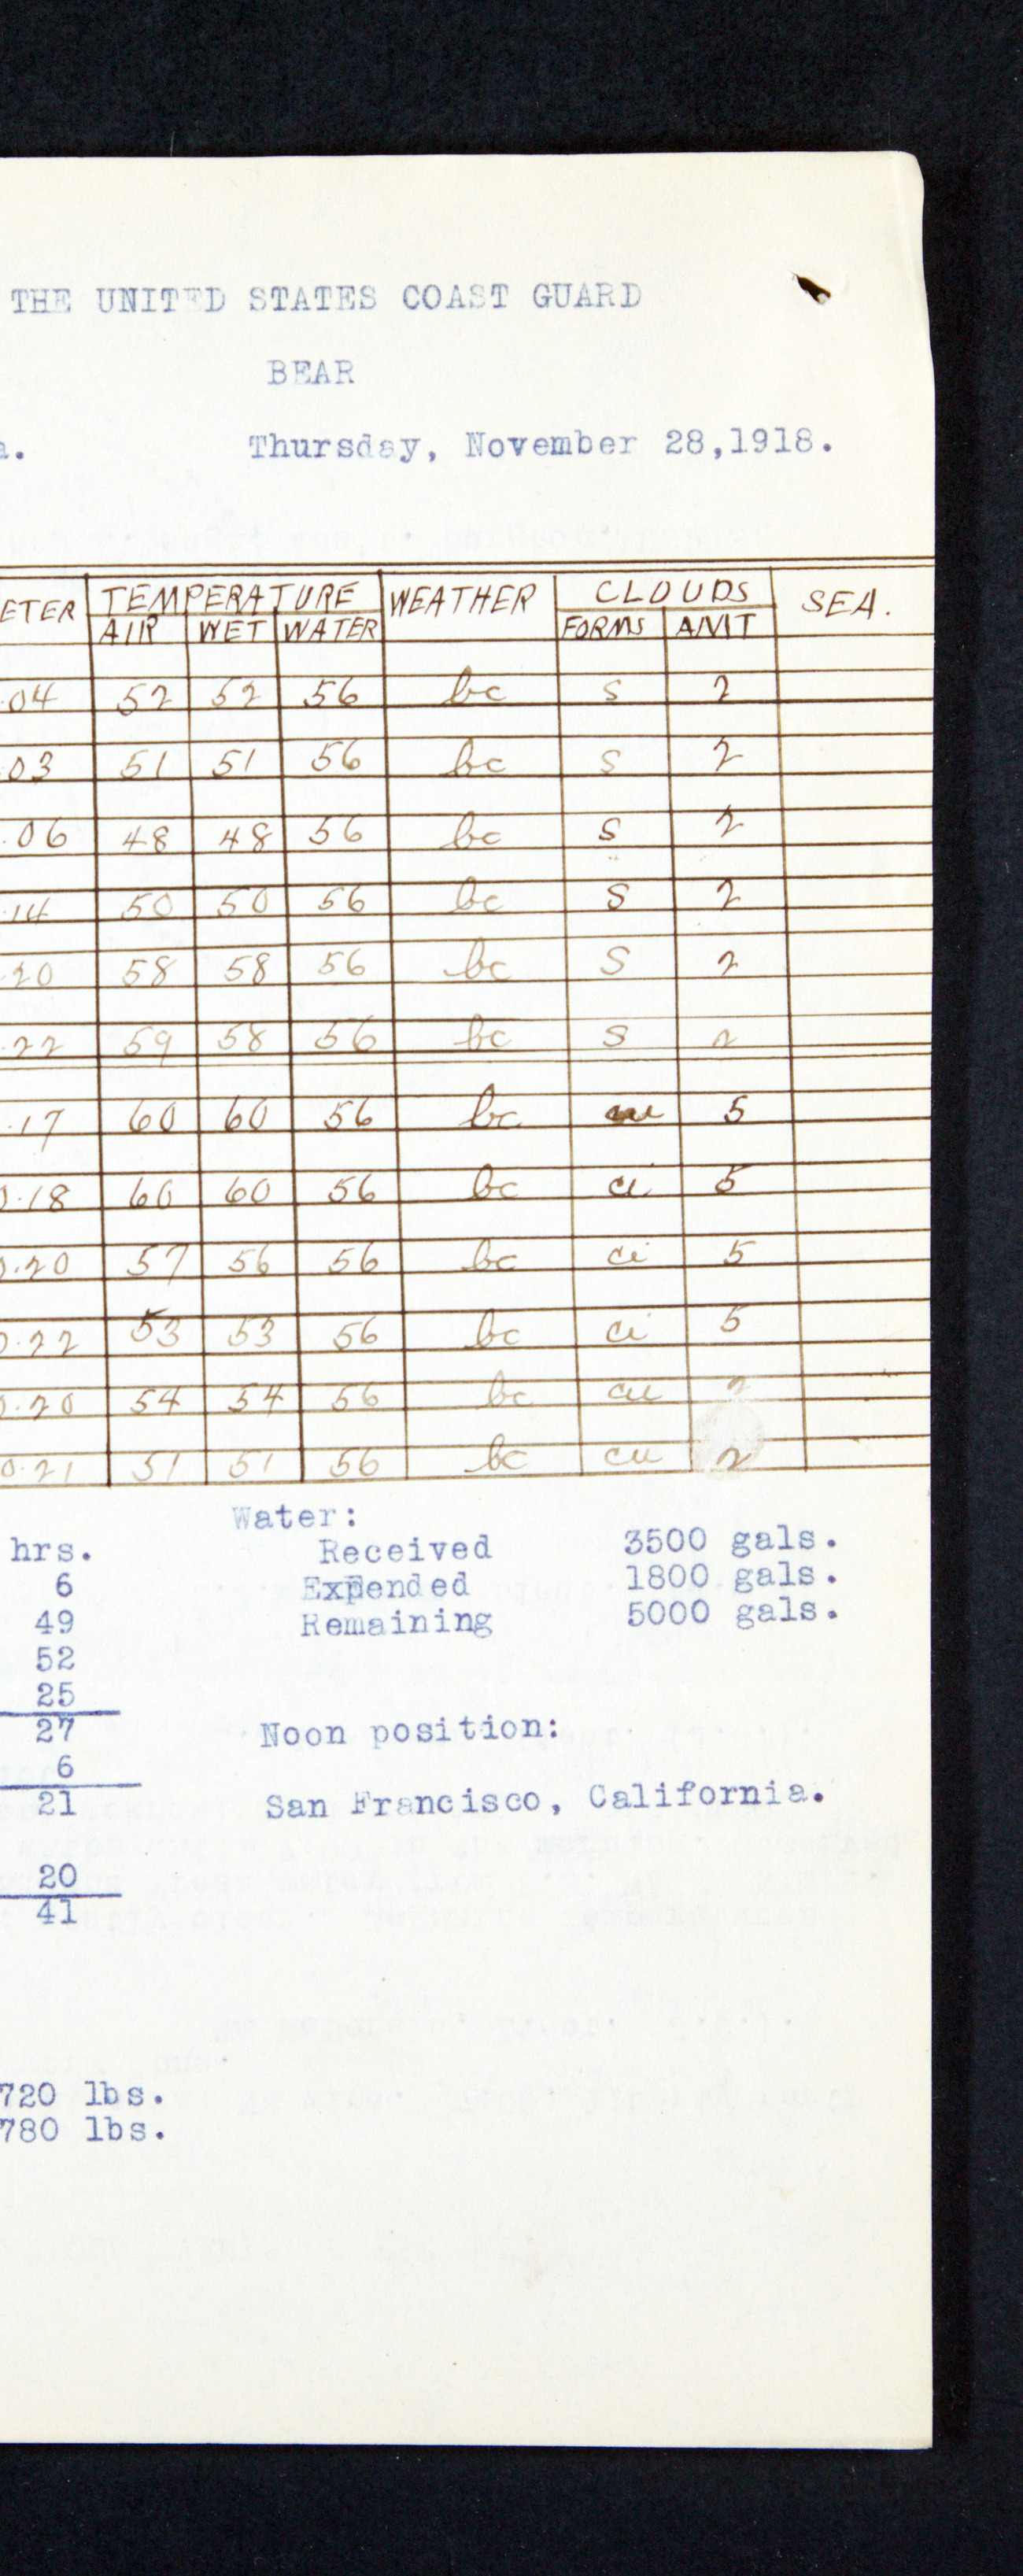 THE UNITED STATES COAST GUARD
BEAR
a. Thursday, November 28,1918.
ETER TEMPERATURE WEATHER CLOUDS SEA.
AIR WET WATER FORMS AMT
.04 52 52 56 bc s 2
03 51 51 56 bc s 2
.06 48 48 56 bc s 2
.14 50 50 56 bc s 2
.20 58 58 56 bc s 2
.22 59 58 56 bc s 2
.17 60 60 56 bc 5
0.18 60 60 56 bc ci 5
0.20 57 56 56 bc ci 5
0.22 53 53 56 bc ci 5
0.20 54 54 56 bc cu 2
0.21 51 51 56 bc cu 2
Water:
hrs. Received 3500 gals.
6 Expended 1800 gals.
49 Remaining 5000 gals.
52
25
27 Noon position:
6
21 San Francisco, California.
20
41
720 lbs.
780 lbs.